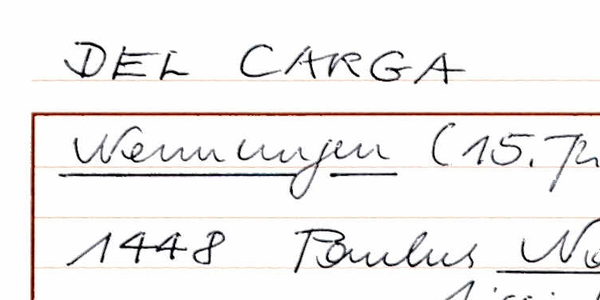 DEL CARGA
Nennungen (15. Jh
1448 Paulus